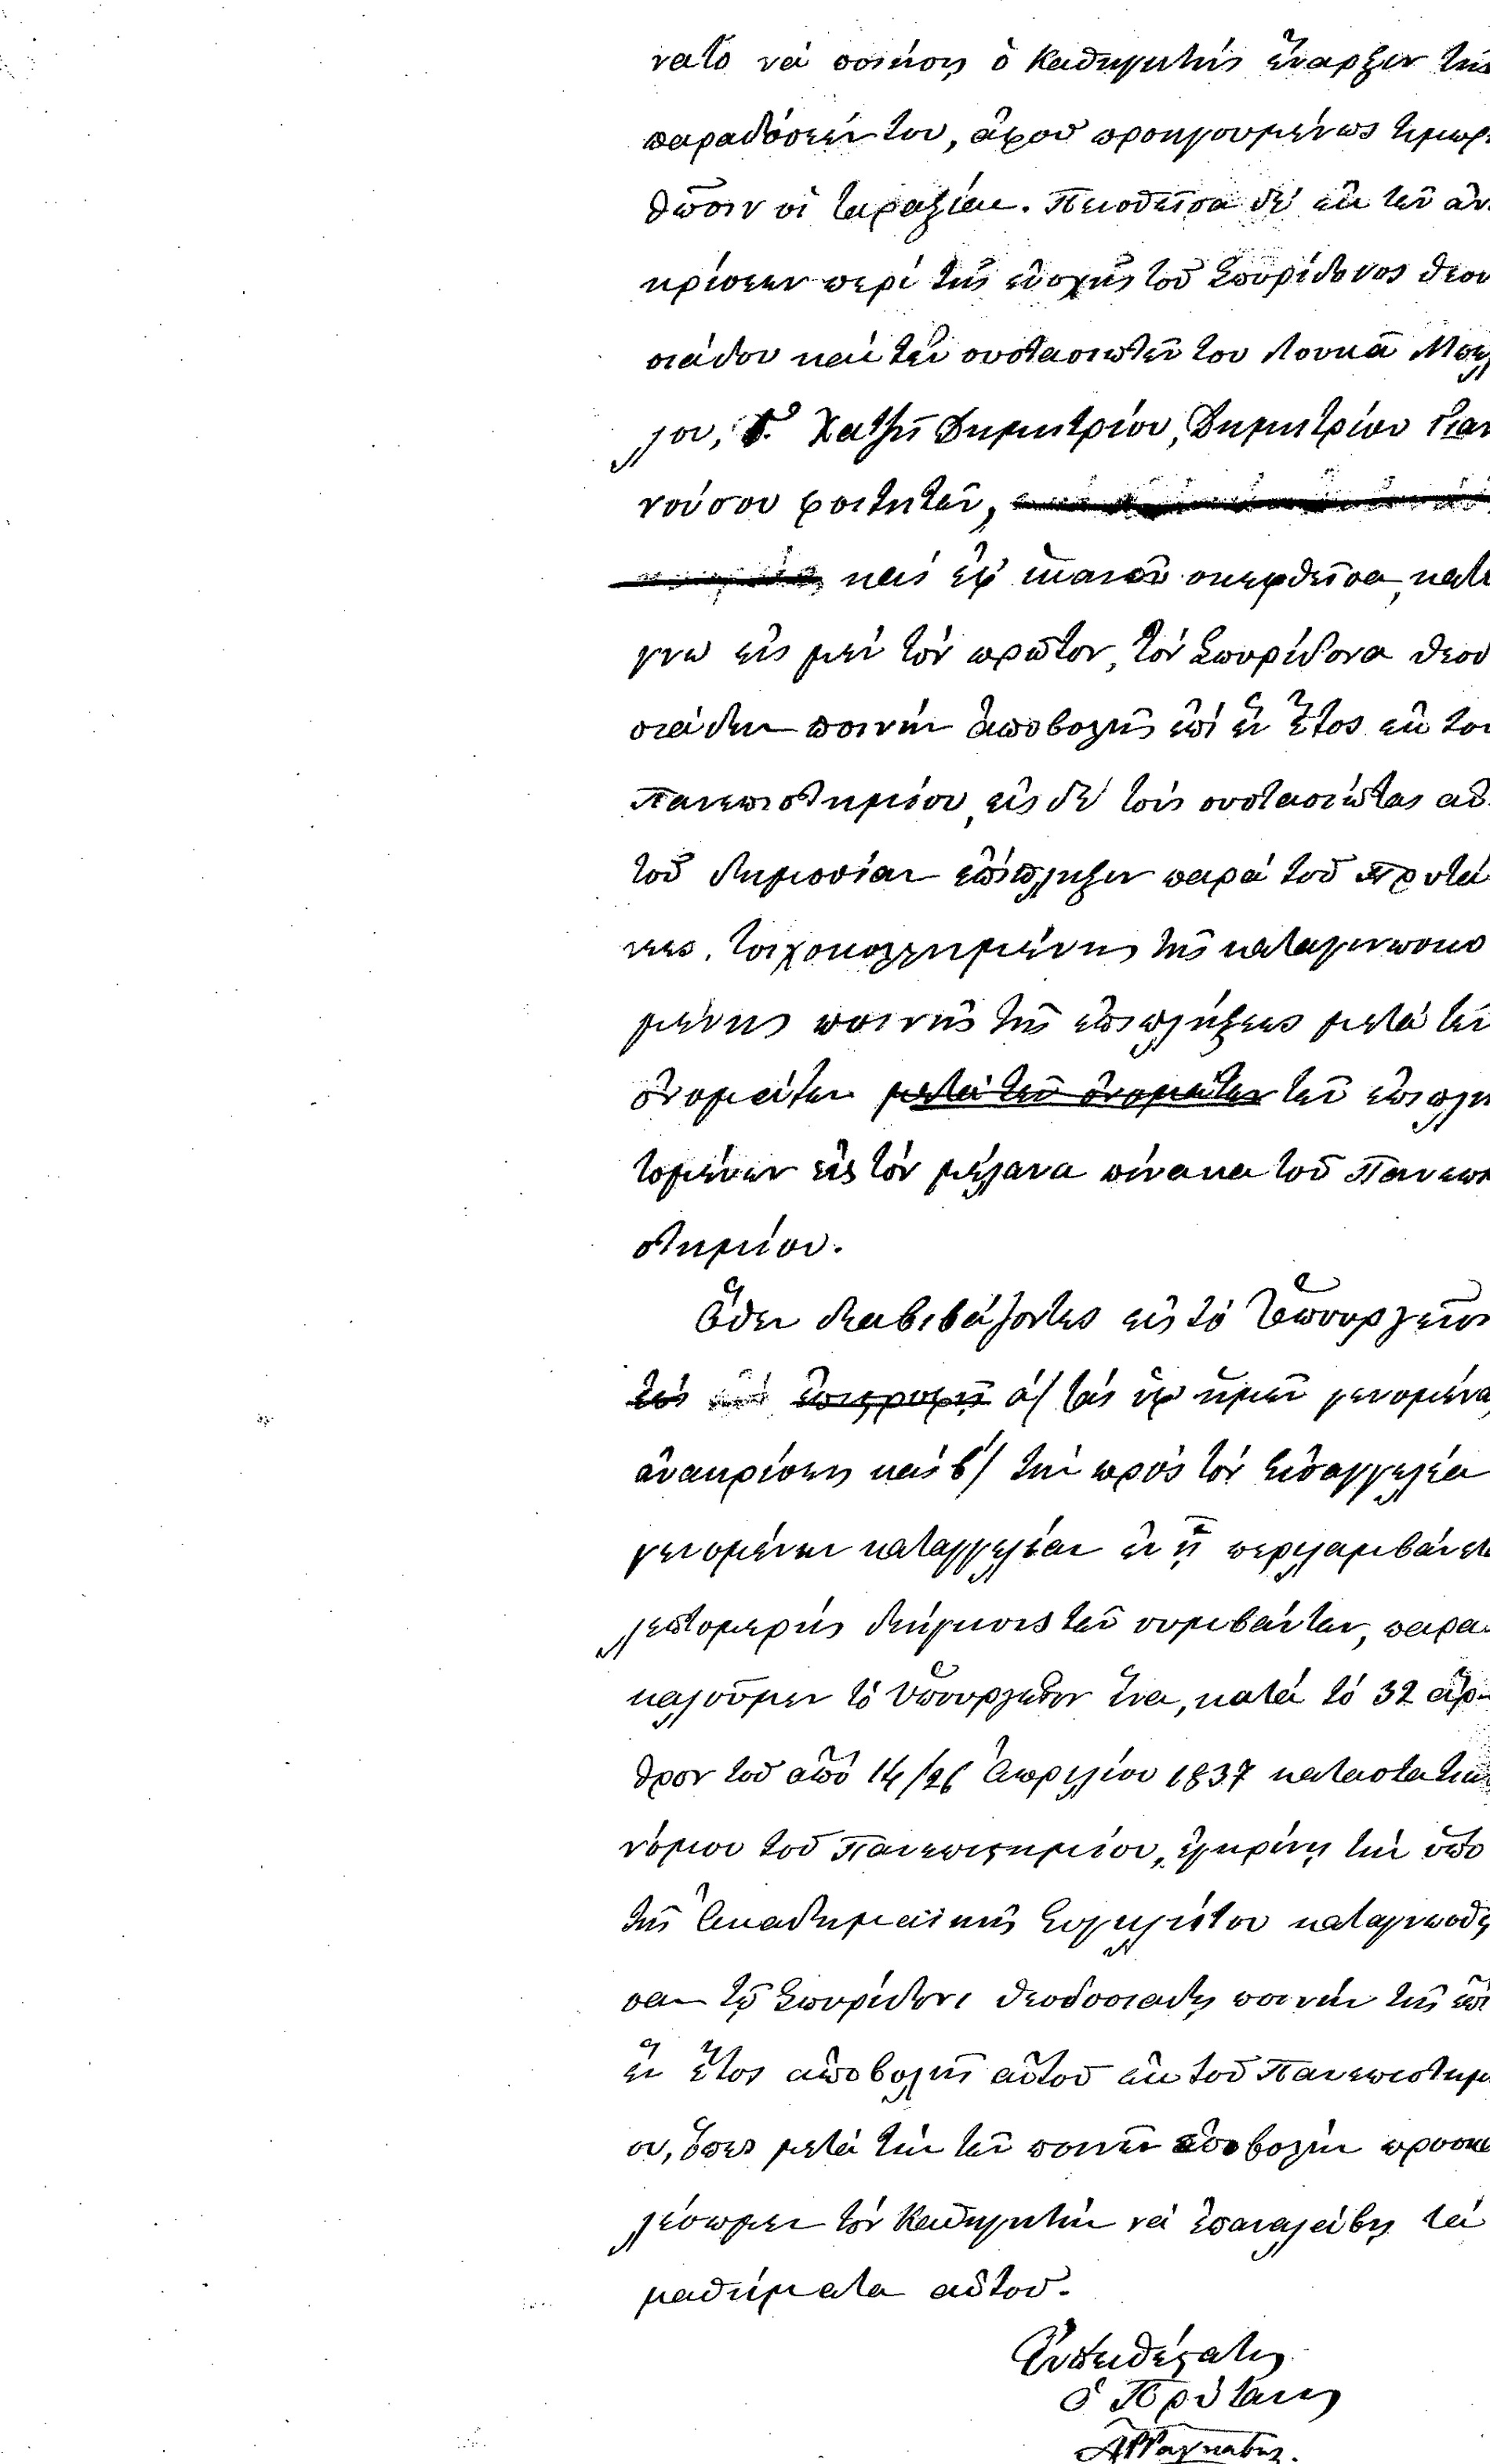 νατο νὰ ποιήσῃ ὁ Καθηγητὴς ἔναρξιν τῆς
παραδόσεών του, ἀφοῦ προηγουμένως τιμωρη
θῶσιν οἱ ταραξίαι. Πεισθεῖσα δὲ ἐκ τῶν ἀνα
κρίσεων περὶ τῆς ἐνοχῆς τοῦ Σπυρίδωνος Θεοδο
σιάδου καὶ τῶν συστασιωτῶν του Λουκᾶ
λου, Γ. Χατζῆ Δημητρίου, Δημητρίου Γιαν
νούσου φοιτητῶν,
καὶ ἐφ' ἱκανὸν σκεφθεῖσα, κατέ
γνω εἰς μὲν τὸν πρῶτον, τὸν Σπυρίδωνα Θεοδο
σιάδην ποινὴν ἀποβολῆς ἐπὶ ἓν ἔτος ἐκ τοῦ
Πανεπιστημίου, εἰς δὲ τοὺς συστασιώτας αὐ
τοῦ δημοσίαν ἐπίπληξιν παρὰ τοῦ Πρυτά
νεως, τοιχοκολλημένης τῆς καταγινωσκο
μένης ποινῆς τῆς ἐπιπλήξεως μετὰ τῶν
ὀνομάτων μετὰ τῶν ὀνομάτων τῶν ἐπιπλη
τομένων εἰς τὸν μέλανα πίνακα τοῦ Πανεπι
στημίου.
Ὅθεν διαβιβάζοντες εἰς τὸ Ὑπουργεῖον
τὰς ἐπιστροφῇ α/ τὰς ὑφ' ἡμῶν γενομένας
ἀνακρίσεις καὶ β/ τὴν πρὸς τὸν Εἰσαγγελέα
γενομένην καταγγελίαν ἐν ᾗ περιλαμβάνεται
λεπτομερὴς διήγησις τῶν συμβάντων, παρα
καλοῦμεν τὸ Ὑπουργεῖον ἵνα, κατὰ τὸ 32 ἄρ
θρον τοῦ ἀπὸ 14/26 Ἀπριλίου 1837 καταστατικοῦ
νόμου τοῦ Πανεπιστημίου, ἐγκρίνῃ τὴν ὑπὸ
τῆς Ἀκαδημαϊκῆς Συγκλήτου καταγνωσθεῖ
σαν τῷ Σπυρίδωνι Θεοδοσιάδῃ ποινὴν τῆς ἐπὶ
ἓν ἔτος ἀποβολῆς αὐτοῦ ἐκ τοῦ Πανεπιστημί
ου, ὅπως μετὰ τὴν τῶν ποινῶν ἐπιβολὴν προσκα
λέσωμεν τὸν Καθηγητὴν νὰ ἐπαναλάβῃ τὰ
μαθήματα αὐτοῦ.
Εὐπειθέστατος
ὁ Πρύτανις